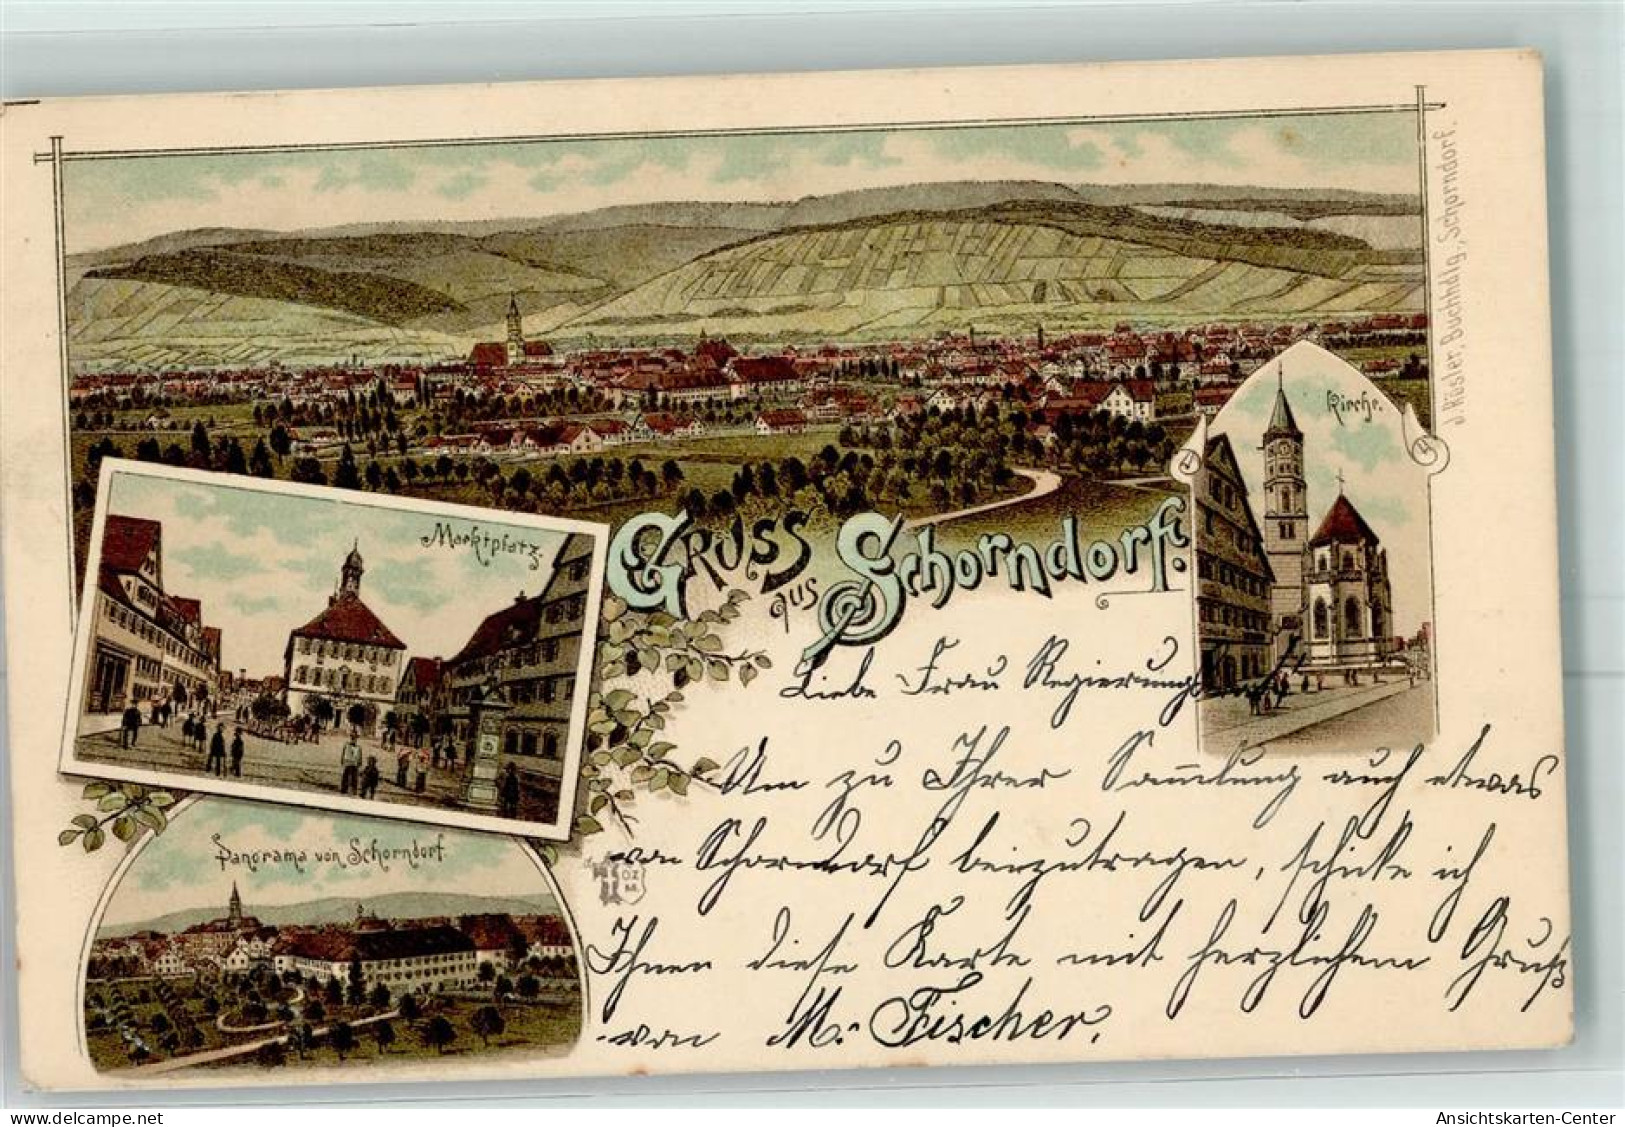 J. Rösler, Buchhdlg, Schorndorf.
Kirche.
Marktplatz.
Gruss
aus
Schorndorf.
Panorama von Schorndorf.
Liebe Frau Regierungsrat!
Um zu Ihrer Sammlung auch etwas
von Schorndorf beizutragen, schicke ich
Ihnen diese Karte mit herzlichem Gruß
von M. Fischer.
Ansichtskarten-Center